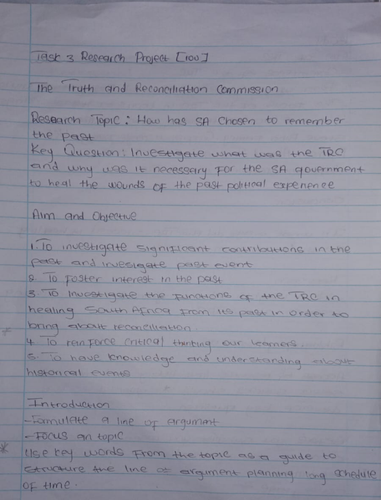 Task 3 Research Project [100]
The Truth and Reconciliation Commission
Research Topic: How has SA chosen to remember
the past
Key Question: Investigate what was the TRC
and why was it necessary for the SA government
to heal the wounds of the past political experience
Aim and Objective
1. To investigate significant contributions in the
past and investigate past event
2. To foster interest in the past
3. To investigate the functions of the TRC in
healing South Africa from its past in order to
bring about reconciliation
4. To reinforce critical our learners
5. To have knowledge and understanding about
historical events
Introduction
- Formulate a line of argument
- Focus on topic
Use key words from the topic as a guide to
structure the line of argument planning
of time.